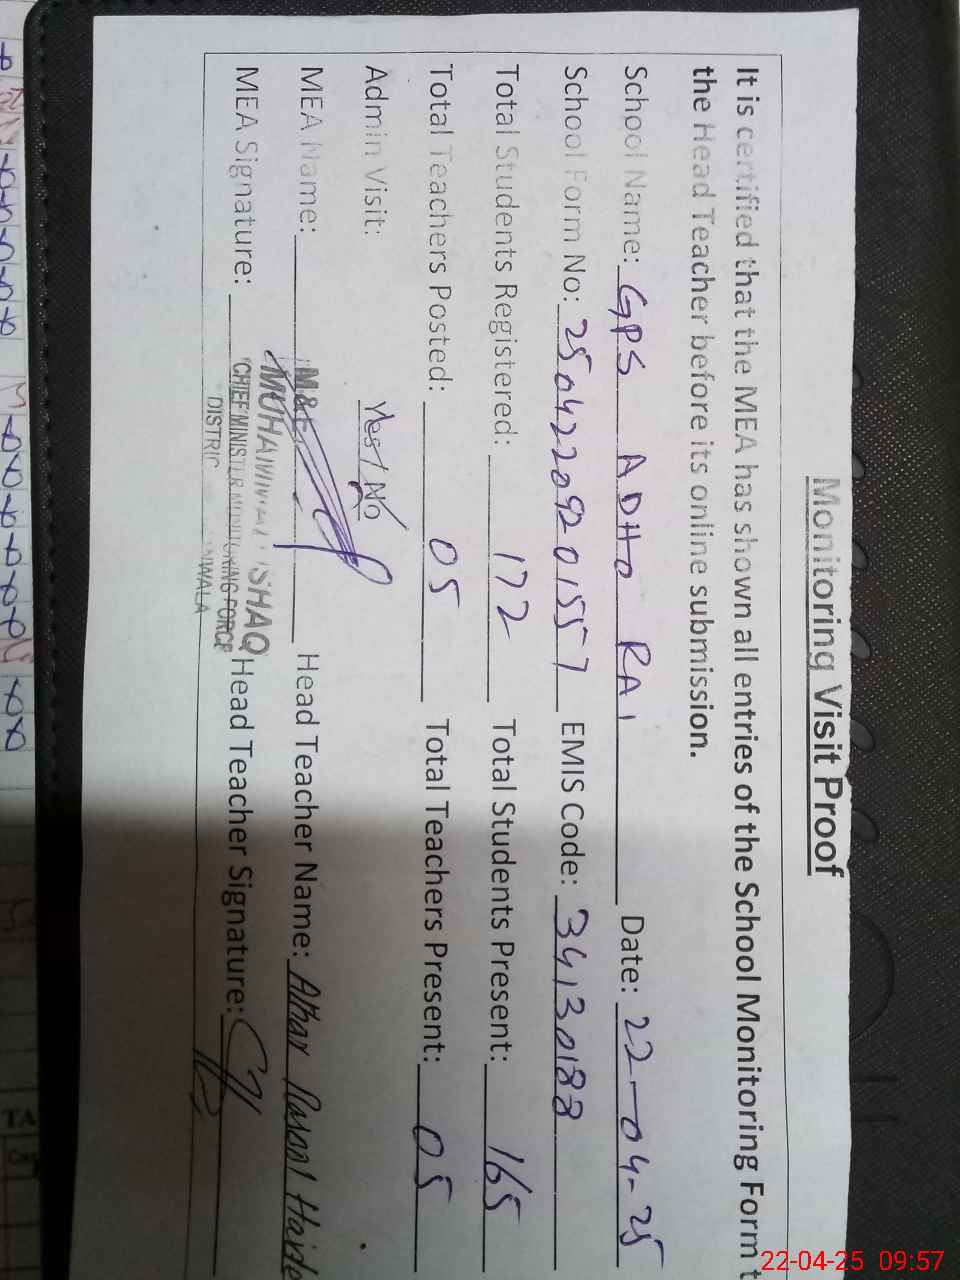 Monitoring Visit Proof
It is certified that the MEA has shown all entries of the School Monitoring Form t
the Head Teacher before its online submission.
School Name: GPS ADHO RAI Date: 22-04-25
School Form No: 25042209201557 EMIS Code: 34130188
Total Students Registered: 172 Total Students Present: 165
Total Teachers Posted: 05 Total Teachers Present: 05
Admin Visit: Yes / No
MEA Name: M&E Head Teacher Name: Athar Rasool Haide
MUHAMMAD ISHAQ
MEA Signature: CHIEF MINISTER MONITORING FORCE Head Teacher Signature:
DISTRIC
TA
22-04-25 09:57